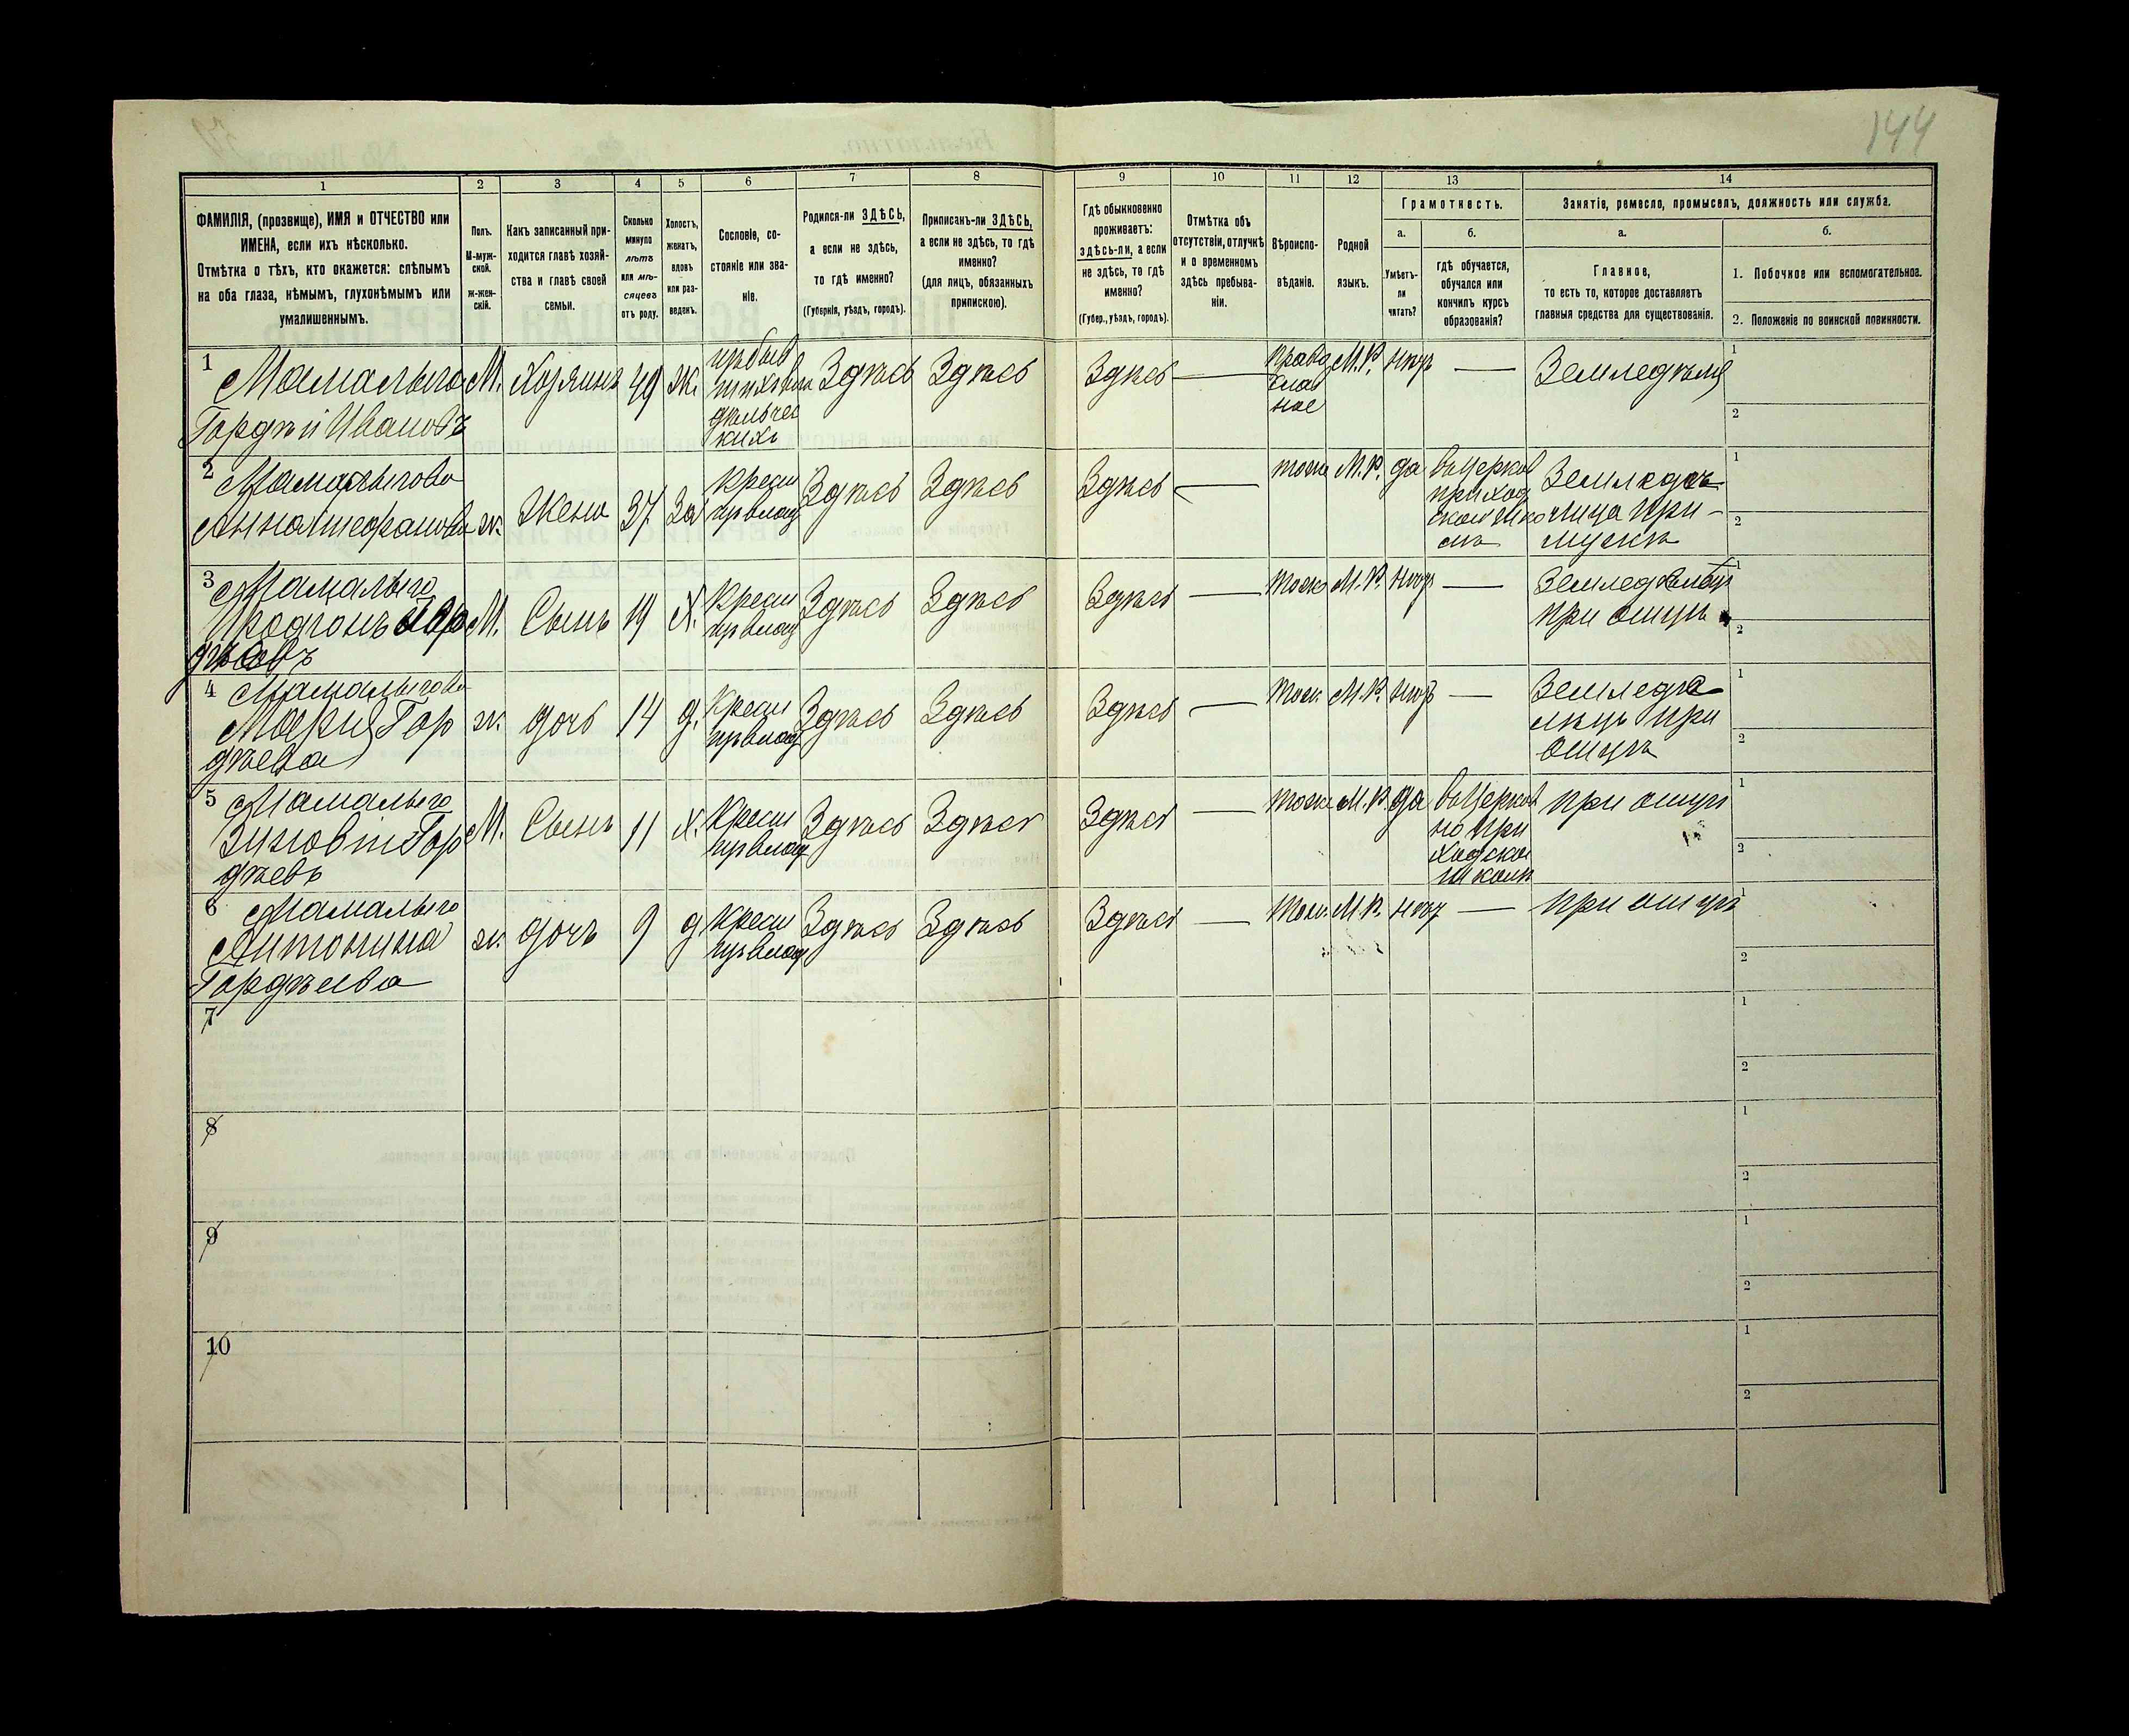 144
1 2 3 4 5 6 7 8 9 10 11 12 13 14
ФАМИЛІЯ, (прозвище), ИМЯ и ОТЧЕСТВО или
ИМЕНА, если ихъ нѣсколько.
Отмѣтка о тѣхъ, кто окажется: слѣпымъ
на оба глаза, нѣмымъ, глухонѣмымъ или
умалишеннымъ.
Полъ.
М-муж-
ской.
ж-жен-
скій.
Какъ записанный при-
ходится главѣ хозяй-
ства и главѣ своей
семьи.
Сколько
минуло
лѣтъ
или мѣ-
сяцевъ
отъ роду.
Холостъ,
женатъ,
вдовъ
или раз-
веденъ.
Сословіе, со-
стояніе или зва-
ніе.
Родился-ли ЗДѢСЬ,
а если не здѣсь,
то гдѣ именно?
(Губернія, уѣздъ, городъ).
Приписанъ-ли ЗДѢСЬ,
а если не здѣсь, то гдѣ
именно?
(для лицъ, обязанныхъ
припискою).
Гдѣ обыкновенно
проживаетъ:
здѣсь-ли, а если
не здѣсь, то гдѣ
именно?
(Губер., уѣздъ, городъ).
Отмѣтка объ
отсутствіи, отлучкѣ
и о временномъ
здѣсь пребыва-
ніи.
Вѣроиспо-
вѣданіе.
Родной
языкъ.
Грамотность.
а.
Умѣетъ-
ли
читать?
б.
гдѣ обучается,
обучался или
кончилъ курсъ
образованія?
Занятіе, ремесло, промыселъ, должность или служба.
а.
Главное,
то есть то, которое доставляетъ
главныя средства для существованія.
б.
1. Побочное или вспомогательное.
2. Положеніе по воинской повинности.
1
Мамалыга
Гордѣй Ивановъ
М. Хозяинъ 49 ж.
Здѣсь Здѣсь Здѣсь —
правд
слав
ное
М.Р. нѣтъ — Земледѣлія
1
2
2
Мамалыгова
Анна Стефанова
ж. Жена 37 За
Крест
изъ влад
Здѣсь Здѣсь Здѣсь —
тоже М.Р. да
въ Церков
приход
ской шко
лѣ
Земледѣ
лица при
мужѣ
1
2
3
Мамалыга
Иродіонъ Гор
дѣевъ
М. Сынъ 19 Х.
Крест
изъ влад
Здѣсь Здѣсь Здѣсь —
тоже М.Р. нѣтъ —
Земледѣлецъ
при отцѣ
1
2
4
Мамалыгова
Марія Гор
дѣева
ж. дочь 14 д.
Крест
изъ влад
Здѣсь Здѣсь Здѣсь —
тож. М.Р. нѣтъ —
Земледѣ
лецъ при
отцѣ
1
2
5
Мамалыга
Зиновій Гор
дѣевъ
М. Сынъ 11 х.
Крест
изъ влад
Здѣсь Здѣсь Здѣсь —
тоже М.Р. да
въ Церков
но при
ходской
школѣ
при отцѣ
1
2
6
Мамалыга
Антонина
Гордѣева
ж. дочь 9 д.
Крест
изъ влад
Здѣсь Здѣсь Здѣсь —
тож. М.Р. нѣтъ — при отцѣ
1
2
7
1
2
8
1
2
9
1
2
10
1
2